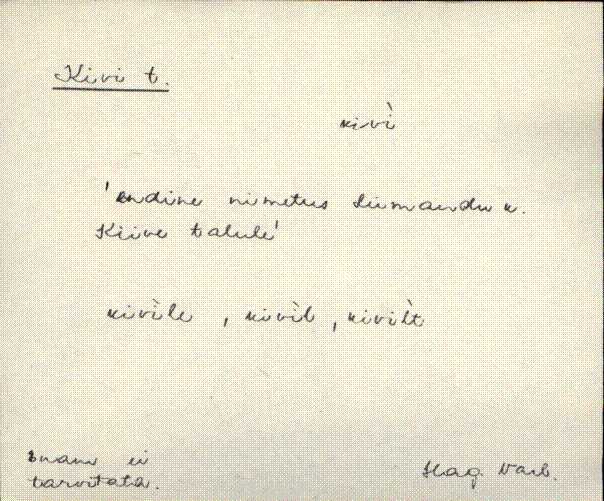 Kivi t.
kivì
'endine nimetus Liimandu k.
Kiive talule'
kivìle, kivìl, kivìlt
enam ei
tarvitata.
Hag. Varb.